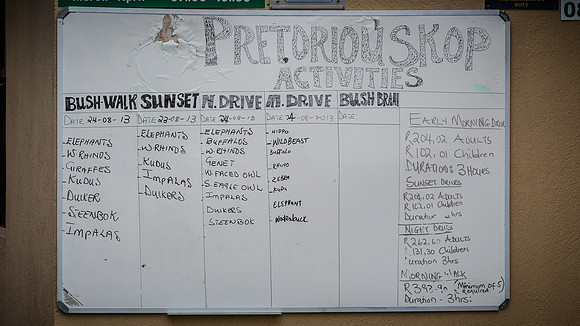 DUTY
PRETORIOUSKOP
ACTIVITIES
BUSH-WALK
DATE: 24-08-13
ELEPHANTS
W.RHINOS
GIRAFFES
KUDUS
DUIKER
STEENBOK
IMPALAS
SUNSET
DATE: 23-08-13
ELEPHANTS
W.RHINOS
KUDUS
IMPALAS
DUIKERS
N. DRIVE
DATE: 24-08-13
ELEPHANTS
BUFFALOS
W.RHINOS
GENET
W.FACED OWL
S.EAGLE OWL
IMPALAS
DUIKERS
STEENBOK
M. DRIVE
DATE: 24
HIPPO
WILDBEAST
BUFFALO
RHINO
ZEBRA
KUDU
ELEPHANT
WATERBUCK
BUSH BRAAI
DATE:
EARLY MORNING DRIVE
R204.02 ADULTS
R102.01 Children
DURATION: 3 HOURS
SUNSET DRIVES
R204.02 ADULTS
R102.01 Children
Duration hrs
NIGHT DRIVES
R262.60 ADULTS
131.30 Children
uration 3hrs
MORNING WALK
R393.90 (Minimum of 5 Required)
Duration - 3hrs: